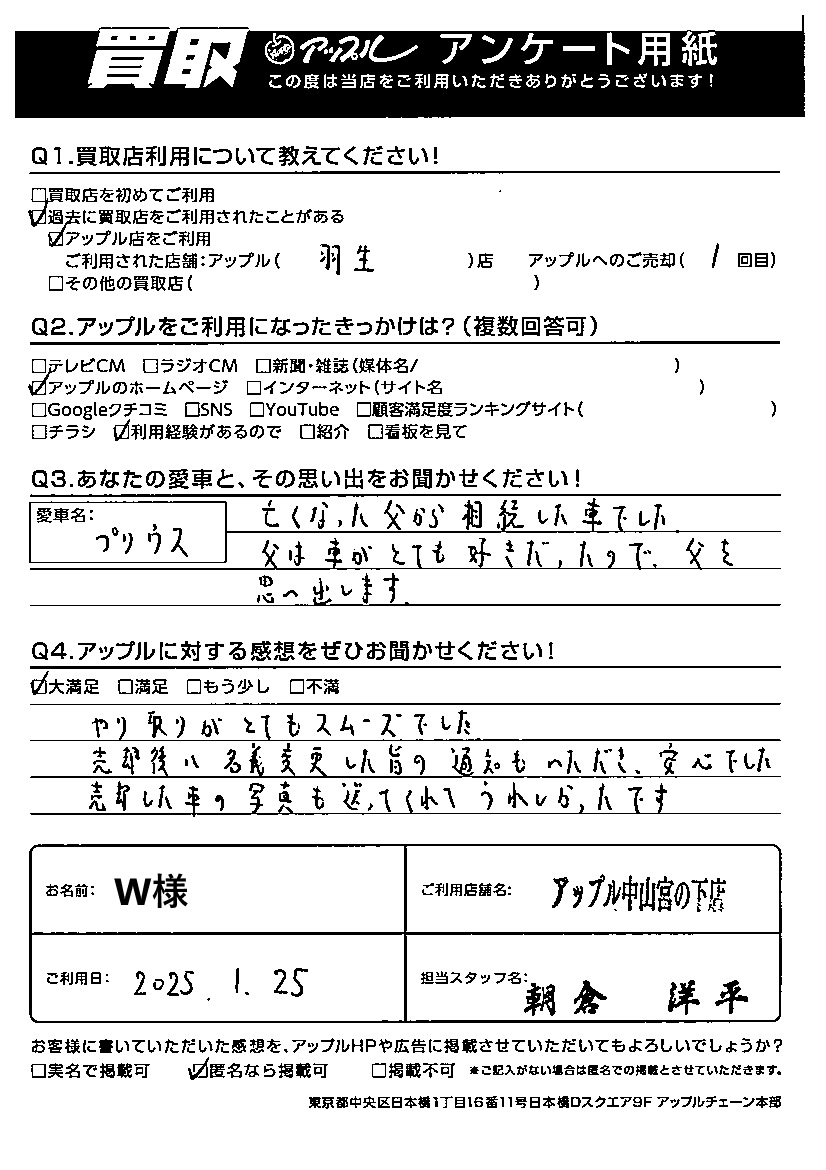 買取 アップル アンケート用紙
この度は当店をご利用いただきありがとうございます!
Q1.買取店利用について教えてください!
□買取店を初めてご利用
☑過去に買取店をご利用されたことがある
☑アップル店をご利用
ご利用された店舗:アップル( 羽生 )店 アップルへのご売却( 1 回目)
□その他の買取店( )
Q2.アップルをご利用になったきっかけは?(複数回答可)
□テレビCM □ラジオCM □新聞・雑誌(媒体名/ )
☑アップルのホームページ □インターネット(サイト名 )
□Googleクチコミ □SNS □YouTube □顧客満足度ランキングサイト( )
□チラシ ☑利用経験があるので □紹介 □看板を見て
Q3.あなたの愛車と、その思い出をお聞かせください!
愛車名: プリウス
亡くなった父から相続した車でした
父は車がとても好きだったので、父を
思い出します.
Q4.アップルに対する感想をぜひお聞かせください!
☑大満足 □満足 □もう少し □不満
やり取りがとてもスムーズでした
売却後い名義変更した旨の通知もいただき、安心でした
売却した車の写真も送ってくれてうれしかったです
お名前: W様
ご利用店舗名: アップル中山宮の下店
ご利用日: 2025.1.25
担当スタッフ名: 朝倉 洋平
お客様に書いていただいた感想を、アップルHPや広告に掲載させていただいてもよろしいでしょうか?
□実名で掲載可 ☑匿名なら掲載可 □掲載不可 *ご記入がない場合は匿名での掲載とさせていただきます。
東京都中央区日本橋1丁目16番11号日本橋Dスクエア9F アップルチェーン本部